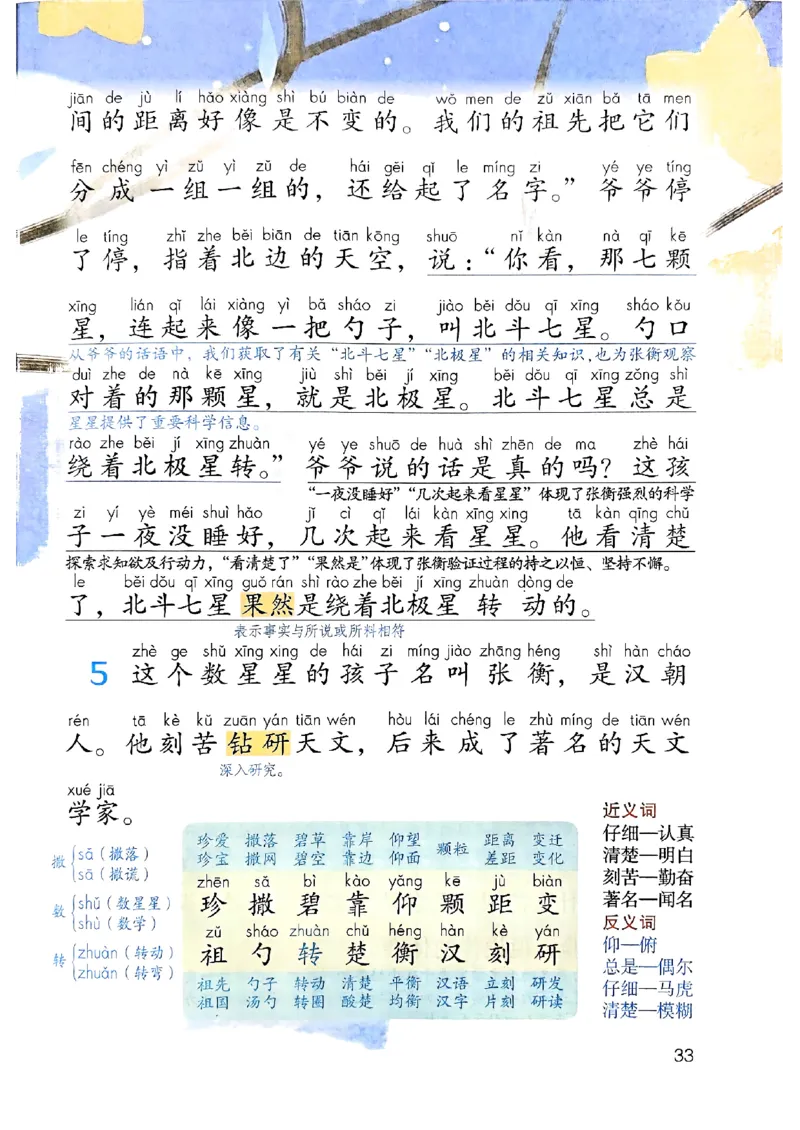 jiān de jù lí hǎo xiàng shì bú biàn de wǒ men de zǔ xiān bǎ tā men
间的距离好像是不变的。我们的祖先把它们
fēn chéng yì zǔ yì zǔ de hái gěi qǐ le míng zi yé ye tíng
分成一组一组的，还给起了名字。”爷爷停
le tíng zhǐ zhe běi biān de tiān kōng shuō nǐ kàn nà qī kē
了停，指着北边的天空，说：“你看，那七颗
xīng lián qǐ lái xiàng yì bǎ sháo zi jiào běi dǒu qī xīng sháo kǒu
星，连起来像一把勺子，叫北斗七星。勺口
从爷爷的话语中，我们获取了有关“北斗七星”“北极星”的相关知识，也为张衡观察
duì zhe de nà kē xīng jiù shì běi jí xīng běi dǒu qī xīng zǒng shì
对着的那颗星，就是北极星。北斗七星总是
星星提供了重要科学信息。
rào zhe běi jí xīng zhuàn yé ye shuō de huà shì zhēn de ma zhè hái
绕着北极星转。”爷爷说的话是真的吗？这孩
“一夜没睡好”“几次起来看星星”体现了张衡强烈的科学
zi yí yè méi shuì hǎo jǐ cì qǐ lái kàn xīng xing tā kàn qīng chǔ
子一夜没睡好，几次起来看星星。他看清楚
探索求知欲及行动力，“看清楚了”“果然是”体现了张衡验证过程的持之以恒、坚持不懈。
le běi dǒu qī xīng guǒ rán shì rào zhe běi jí xīng zhuàn dòng de
了，北斗七星果然是绕着北极星转动的。
表示事实与所说或所料相符
zhè ge shǔ xīng xing de hái zi míng jiào zhāng héng shì hàn cháo
5 这个数星星的孩子名叫张衡，是汉朝
rén tā kè kǔ zuān yán tiān wén hòu lái chéng le zhù míng de tiān wén
人。他刻苦钻研天文，后来成了著名的天文
深入研究。
xué jiā
学家。
撒 sā（撒落）
sā（撒谎）
数 shǔ（数星星）
shù（数学）
转 zhuàn（转动）
zhuǎn（转弯）
珍爱 撒落 碧草 靠岸 仰望 颗粒 距离 变迁
珍宝 撒网 碧空 靠边 仰面 差距 变化
zhēn sǎ bì kào yǎng kē jù biàn
珍 撒 碧 靠 仰 颗 距 变
zǔ sháo zhuàn chǔ héng hàn kè yán
祖 勺 转 楚 衡 汉 刻 研
祖先 勺子 转动 清楚 平衡 汉语 立刻 研发
祖国 汤勺 转圈 酸楚 均衡 汉字 片刻 研读
近义词
仔细—认真
清楚—明白
刻苦—勤奋
著名—闻名
反义词
仰—俯
总是—偶尔
仔细—马虎
清楚—模糊
33